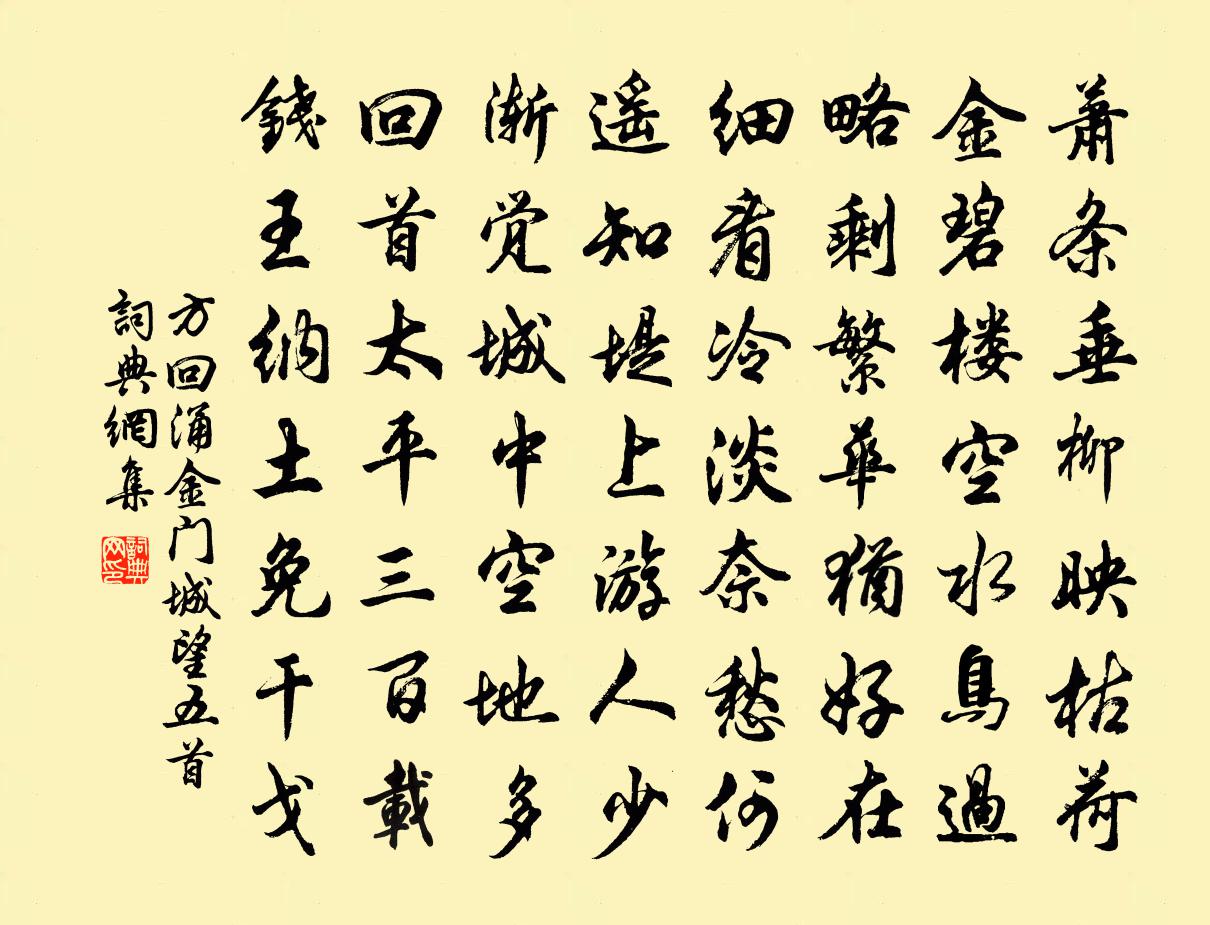 萧条垂柳映枯荷
金碧楼空水鳥過
略剩繁華猶好在
细看冷淡奈愁何
遥知堤上游人少
渐觉城中空地多
回首太平三百載
錢王纳土免干戈
方回涌金门城望五首
詞典網集
詞典网印